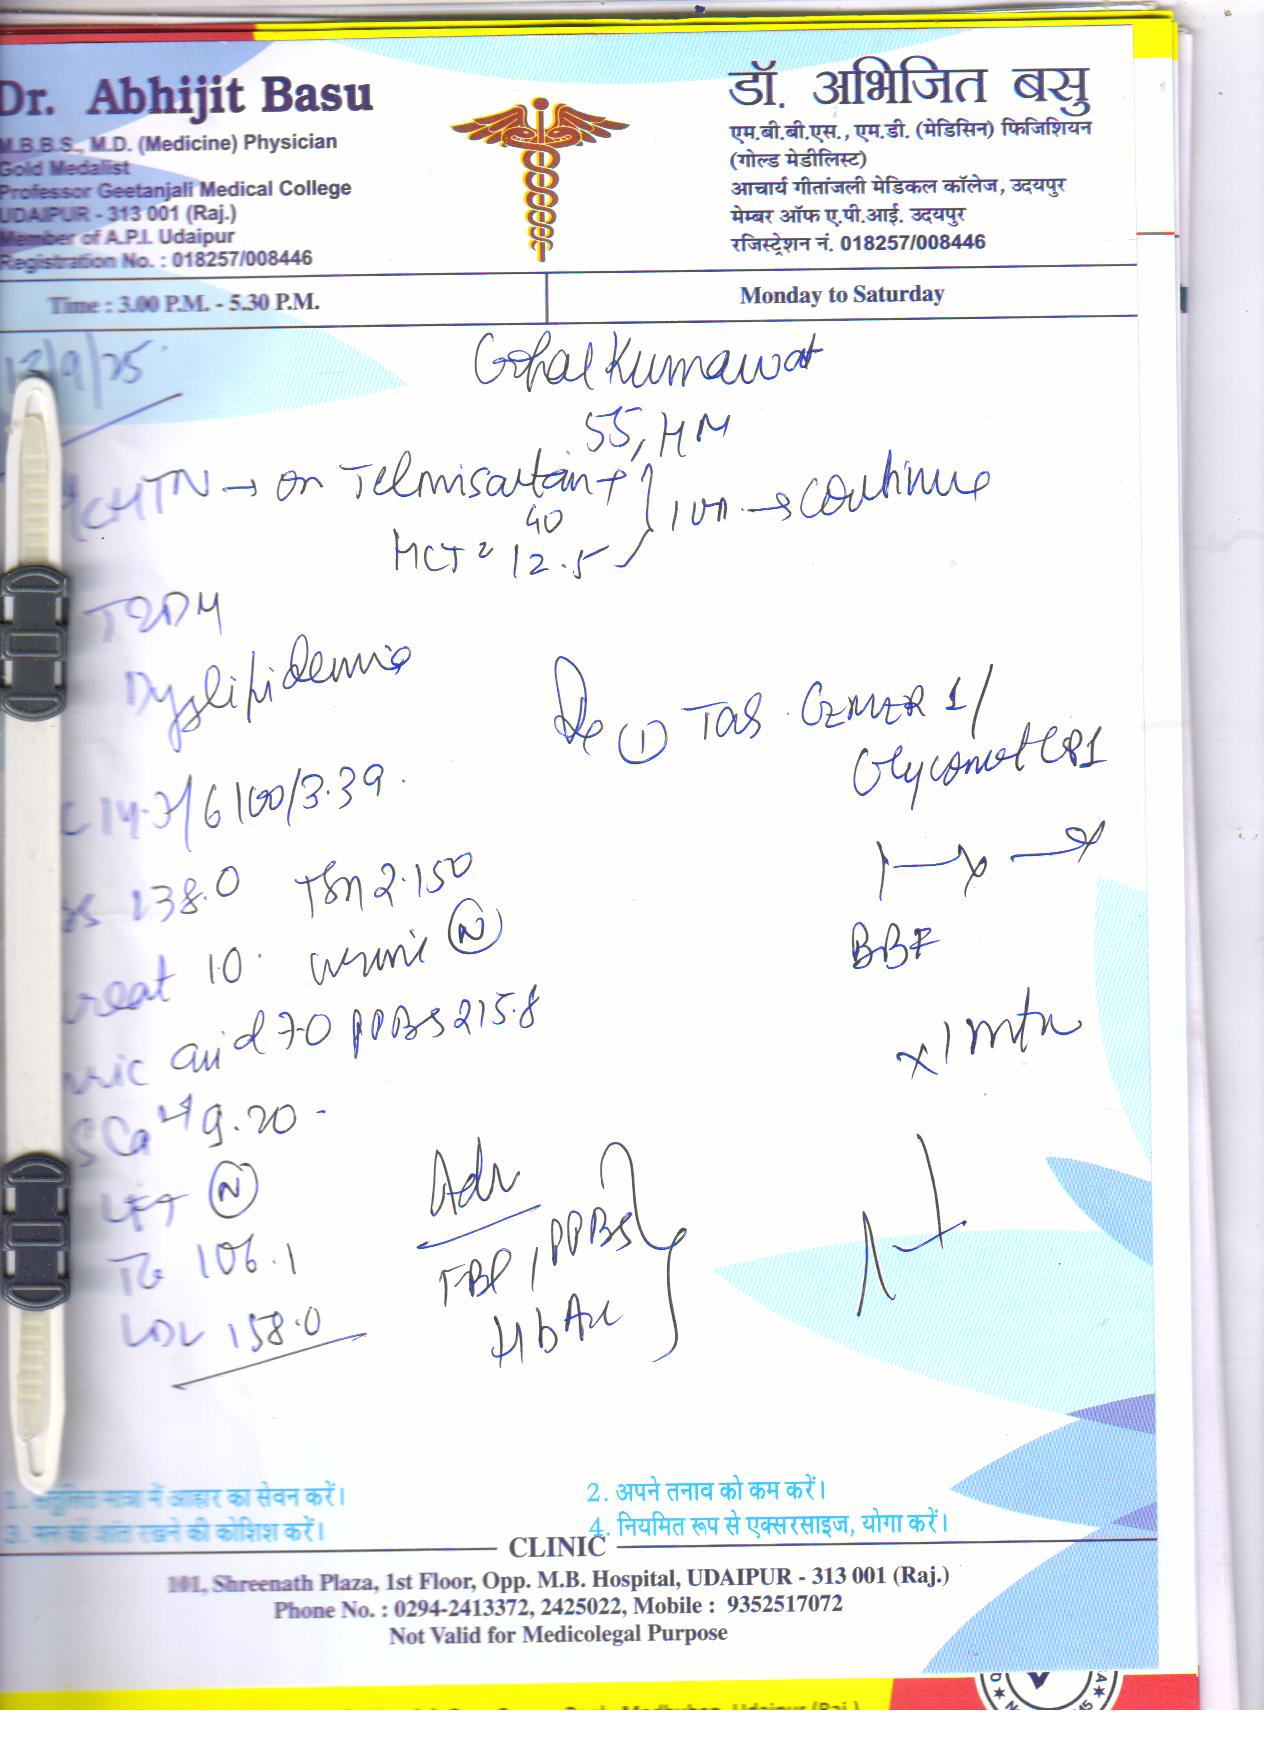 Dr. Abhijit Basu
M.B.B.S., M.D. (Medicine) Physician
Gold Medalist
Professor Geetanjali Medical College
UDAIPUR - 313 001 (Raj.)
Member of A.P.I. Udaipur
Registration No. : 018257/008446
डॉ. अभिजित बसु
एम.बी.बी.एस., एम.डी. (मेडिसिन) फिजिशियन
(गोल्ड मेडीलिस्ट)
आचार्य गीतांजली मेडिकल कॉलेज, उदयपुर
मेम्बर ऑफ ए.पी.आई. उदयपुर
रजिस्ट्रेशन नं. 018257/008446
Time : 3.00 P.M. - 5.30 P.M.
Monday to Saturday
13/9/25
Gopal Kumawat
55, HM
HTN → on Telmisartan +
40
HCT 12.5
→ continue
T2DM
Dyslipidemia
Rx (1) TAB. GEMER 1/
Glycomet GP1
14.7/6100/3.39
138.0 TSH 2.150
creat 1.0 urine (N)
uric acid 7.0 PPBS 215.8
S Ca++ 9.20
LFT (N)
TG 106.1
LDL 158.0
BBF
x 1 mth
Adv
PPBS
HbA1c
1. संतुलित मात्रा में आहार का सेवन करें।
2. अपने तनाव को कम करें।
3. मन को शांत रखने की कोशिश करें।
4. नियमित रूप से एक्सरसाइज, योगा करें।
CLINIC
101, Shreenath Plaza, 1st Floor, Opp. M.B. Hospital, UDAIPUR - 313 001 (Raj.)
Phone No. : 0294-2413372, 2425022, Mobile : 9352517072
Not Valid for Medicolegal Purpose